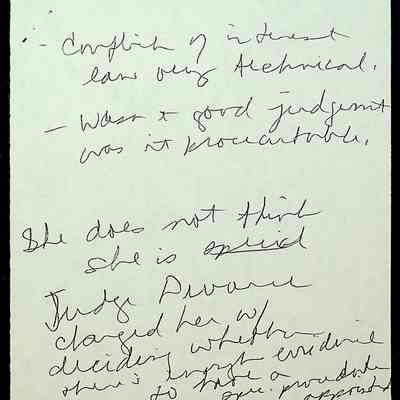 - Conflict of interest
law very technical.
- Wasn't good judgemt
was it prosecutable.
She does not think
she is
Judge
charged her w/
deciding whether
there's enough evidence
to have a
spec. prosecutor
appointed